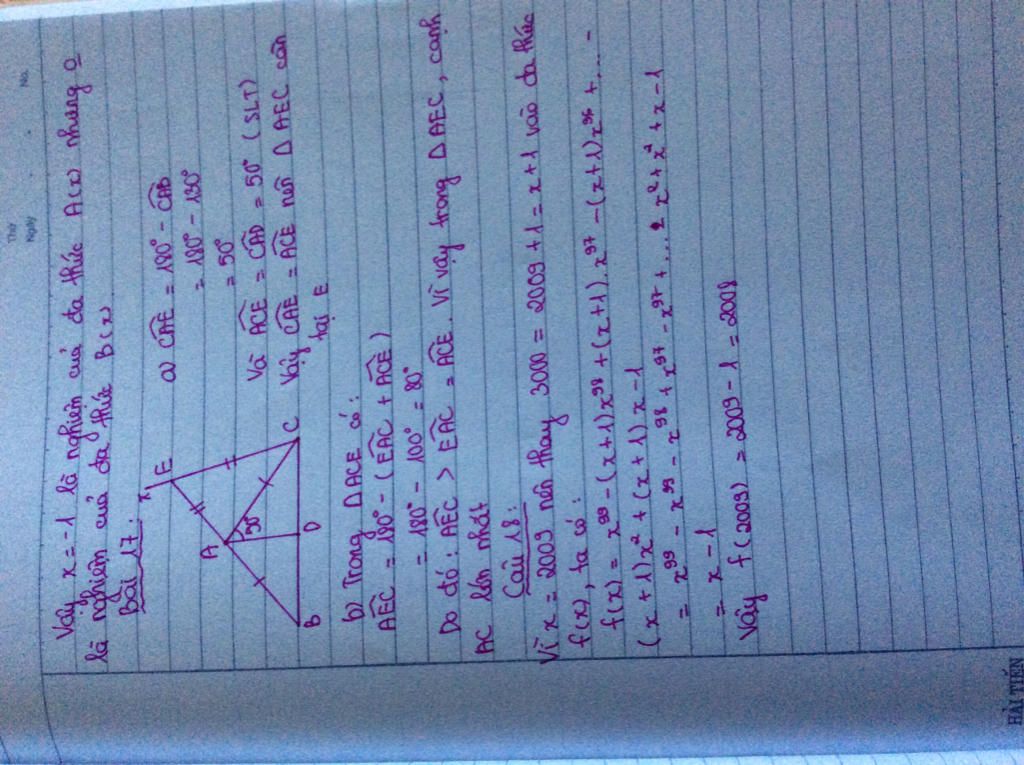 Thứ
Ngày
No.
Vậy x = -1 là nghiệm của đa thức A(x) nhưng o
là nghiệm của đa thức B(x)
Bài 17:
x
E
A
50°
B
D
C
a) CAE = 180° - CAB
= 180° - 130°
= 50°
Và ACE = CAD = 50° (SLT)
Vậy CAE = ACE nên Δ AEC cân
tại E
b) Trong Δ ACE có:
AEC = 180° - (EAC + ACE)
= 180° - 100° = 80°
Do đó: AEC > EAC = ACE. Vì vậy trong Δ AEC, cạnh
AC lớn nhất
Câu 18:
Vì x = 2009 nên thay 3000 = 2009 + 1 = x + 1 vào đa thức
f(x), ta có:
f(x) = x⁹⁹ - (x+1)x⁹⁸ + (x+1).x⁹⁷ - (x+1)x⁹⁶ + ... -
(x+1)x² + (x+1)x - 1
= x⁹⁹ - x⁹⁹ - x⁹⁸ + x⁹⁸ + x⁹⁷ - x⁹⁷ + ... x² + x² + x - 1
= x - 1
Vậy f(2009) = 2009 - 1 = 2008
HẢI TIẾN